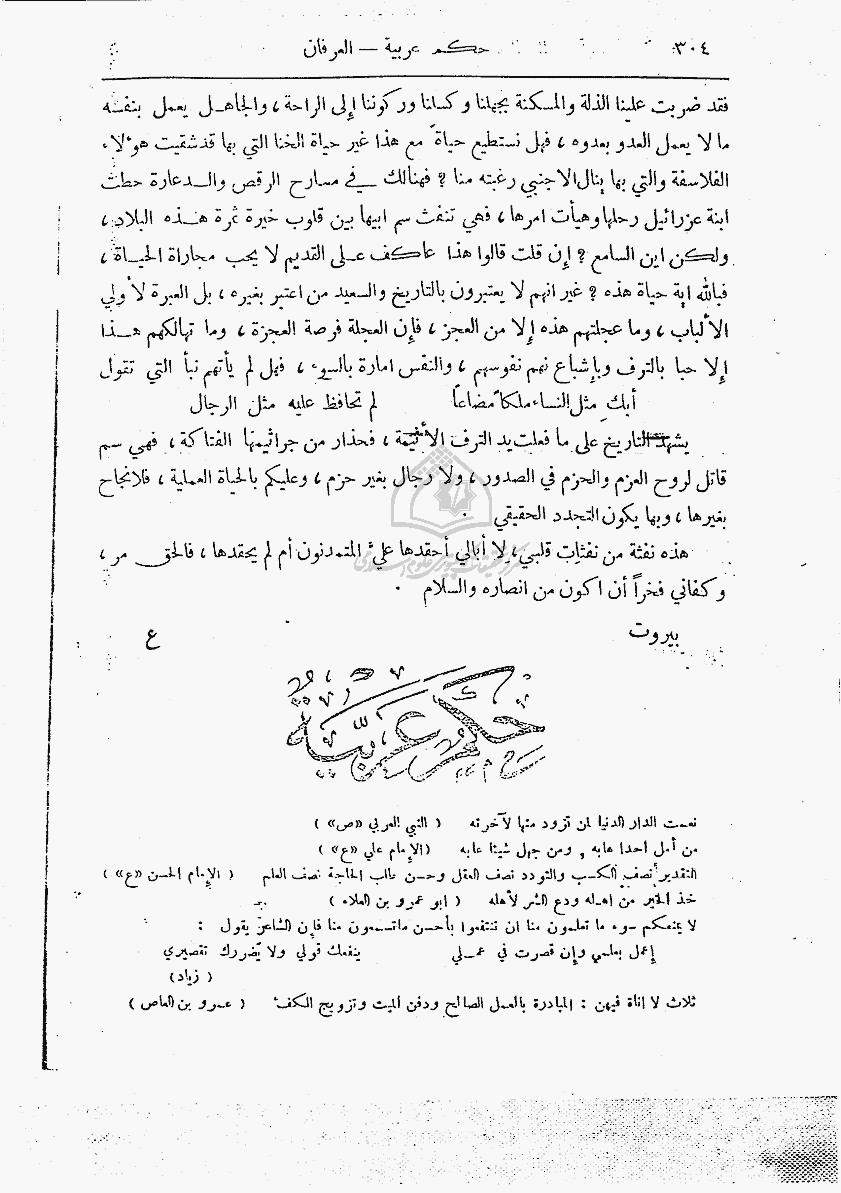 ٣٠٤ حكم عربية – العرفان
فقد ضربت علينا الذلة والمسكنة بجهلنا وكسلنا وركوننا إلى الراحة ، والجاهل يعمل بنفسه
ما لا يعمل العدو بعدوه ، فهل نستطيع حياة مع هذا غير حياة الخنا التي بها قد شقيت هؤلاء
الفلاسفة والتي بها ينال الاجنبي رغبته منا ? فهنالك في مسارح الرقص والدعارة حطت
ابنة عزرائيل رحلها وهيأت امرها ، فهي تنفث سم ابيها بين قلوب خيرة ثمرة هذه البلاد ،
ولكن اين السامع ? إن قلت قالوا هذا عاكف على القديم لا يحب مجاراة الحياة ،
فبالله اية حياة هذه ? غير انهم لا يعتبرون بالتاريخ والسعيد من اعتبر بغيره ، بل العبرة لأولي
الألباب ، وما عجلتهم هذه إلا من العجز ، فإن العجلة فرصة العجزة ، وما تهالكهم هذا
إلا حبا بالترف وبإشباع نهم نفوسهم ، والنفس امارة بالسوء ، فهل لم يأتهم نبأ التي تقول
أبكِ مثل النساء ملكاً مضاعاً لم تحافظ عليه مثل الرجال
يشهد التاريخ على ما فعلت يد الترف الأثيمة ، فحذار من جراثيمها الفتاكة ، فهي سم
قاتل لروح العزم والحزم في الصدور ، ولا رجال بغير حزم ، وعليكم بالحياة العملية ، فلا نجاح
بغيرها ، وبها يكون التجدد الحقيقي .
هذه نفثة من نفثات قلبي ، لا أبالي أحقدها عليّ المتمدنون أم لم يحقدها ، فالحق مر ،
وكفاني فخراً أن اكون من انصاره والسلام .
بيروت ع
حكم عربية
نعمت الدار الدنيا لمن تزود منها لآخرته ( النبي العربي «ص» )
من أمل احدا هابه , ومن جهل شيئا عابه (الإمام علي «ع» )
التقدير نصف الكسب والتودد نصف العقل وحسن طلب الحاجة نصف العلم ( الإمام الحسن «ع» )
خذ الخير من اهله ودع الشر لأهله ( ابو عمرو بن العلاء )
لا يمنعكم سوء ما تعلمون منا ان تنتفعوا بأحسن ما تسمعون منا فإن الشاعر يقول :
إعمل بعلمي وإن قصرت في عملي ينفعك قولي ولا يضررك تقصيري
( زياد )
ثلاث لا إناة فيهن : المبادرة بالعمل الصالح ودفن الميت وتزويج الكفء ( عمرو بن العاص )